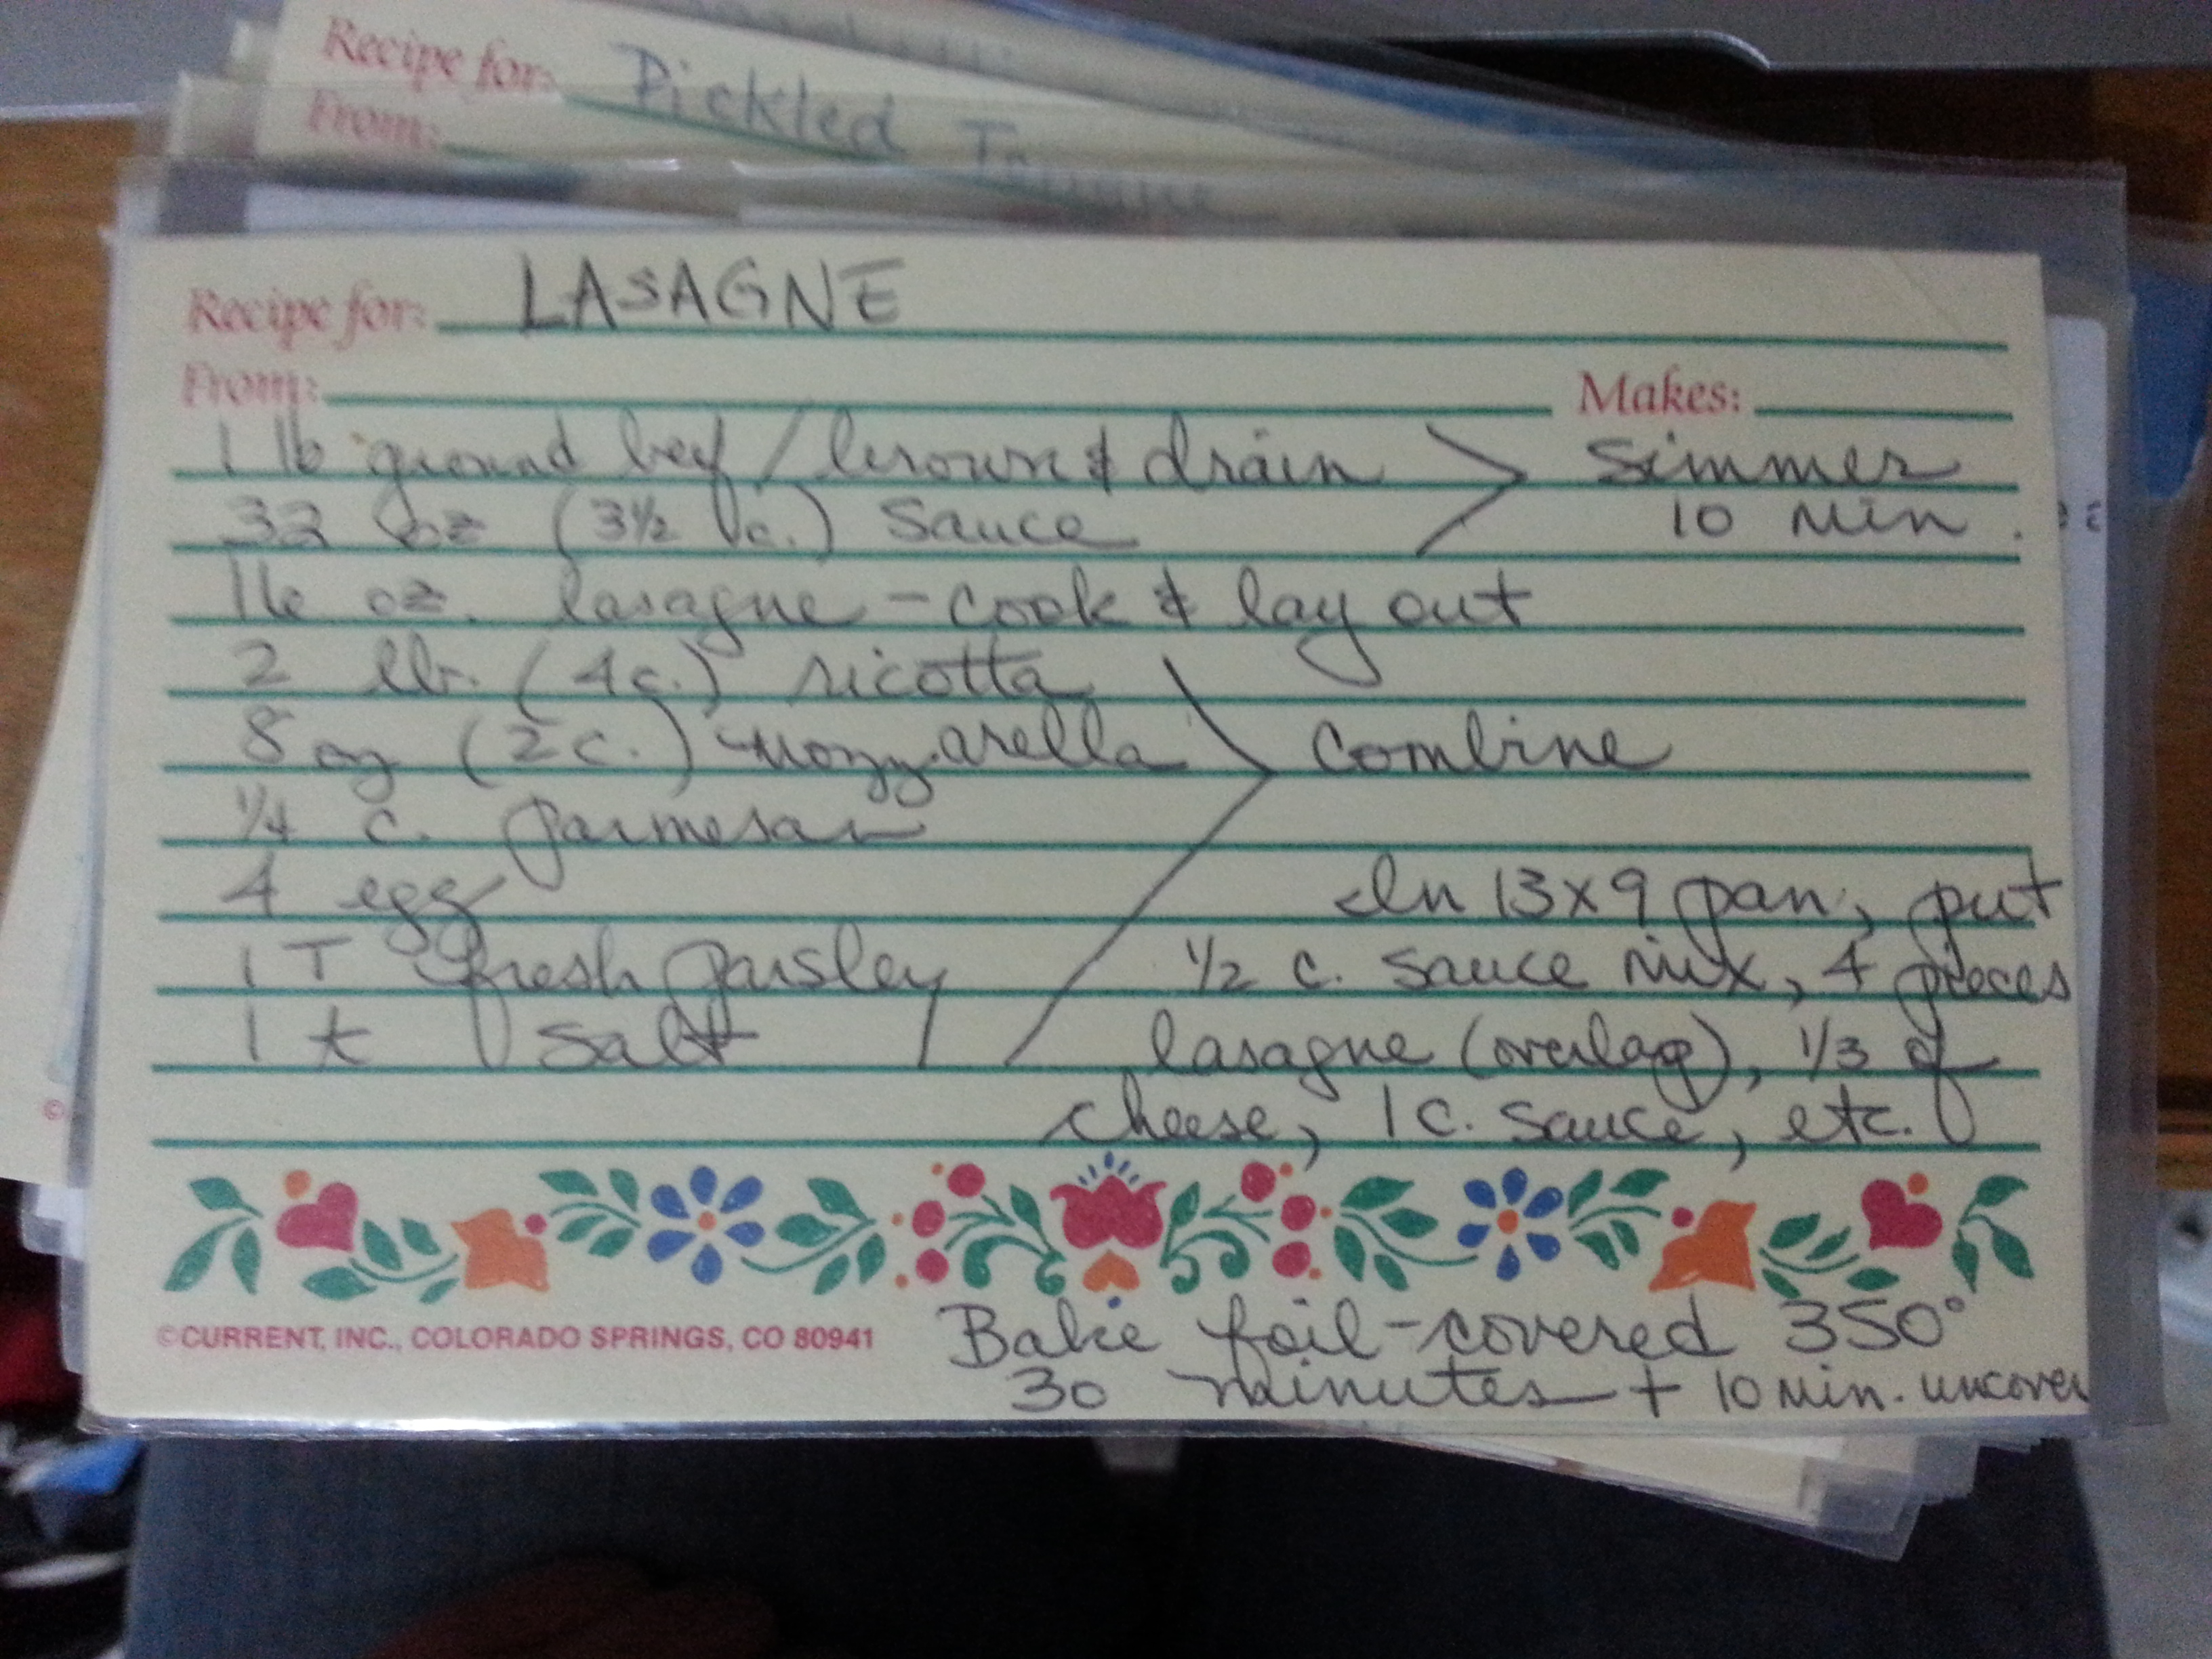 Recipe for: Pickled
From:
Recipe for: LASAGNE
From: Makes:
1 lb ground beef / brown & drain > simmer
32 oz (3½ c.) sauce 10 min.
16 oz. lasagne - cook & lay out
2 lb. (4c.) ricotta
8 oz (2c.) mozzarella > combine
1/4 c. parmesan
4 egg In 13x9 pan, put
1 T fresh parsley 1/2 c. sauce mix, 4 pieces
1 t salt lasagne (overlap), 1/3 of
cheese, 1 c. sauce, etc.
©CURRENT, INC., COLORADO SPRINGS, CO 80941
Bake foil-covered 350°
30 minutes + 10 min. uncover